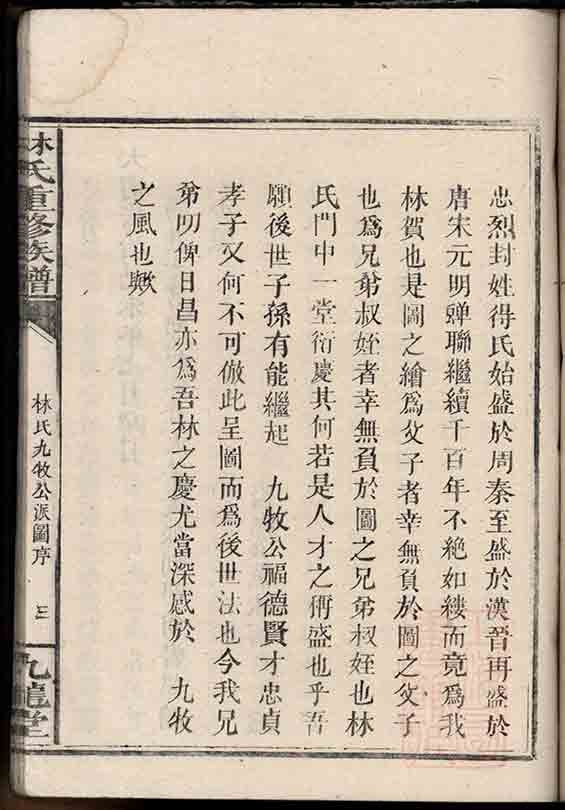 忠烈封姓得氏始盛於周秦至盛於漢晉再盛於
唐宋元明蟬聯繼續千百年不絕如縷而竟為我
林賀也是圖之繪為父子者幸無負於圖之父子
也為兄弟叔姪者幸無負於圖之兄弟叔姪也林
氏門中一堂衍慶其何若是人才之盛也乎吾
願後世子孫有能繼起 九牧公福德賢才忠貞
孝子又何不可倣此呈圖而為後世法也今我兄
弟叨俾日昌亦為吾林之慶尤當深感於 九牧
之風也歟
林氏重修族譜
林氏九牧公派圖序 三
九龍堂